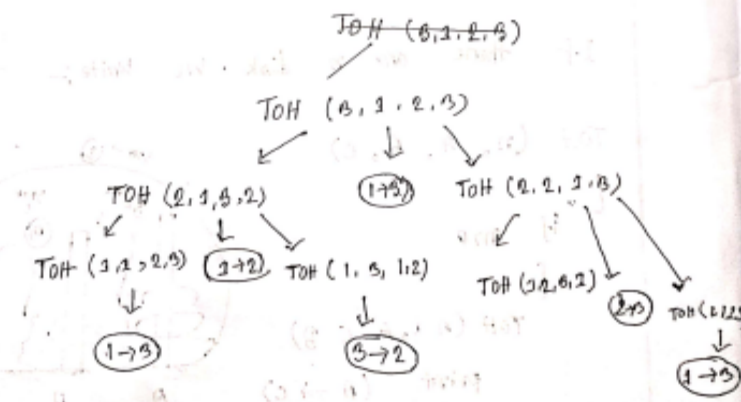 TOH (3,1,2,3)
TOH (3, 1, 2, 3)
TOH (2,1,3,2) 1→3 TOH (2, 2, 1, 3)
TOH (1,1,2,3) 1→2 TOH (1, 3, 1,2) TOH (1,2,3,1) 2→3 TOH (
1→3 3→2 1→3